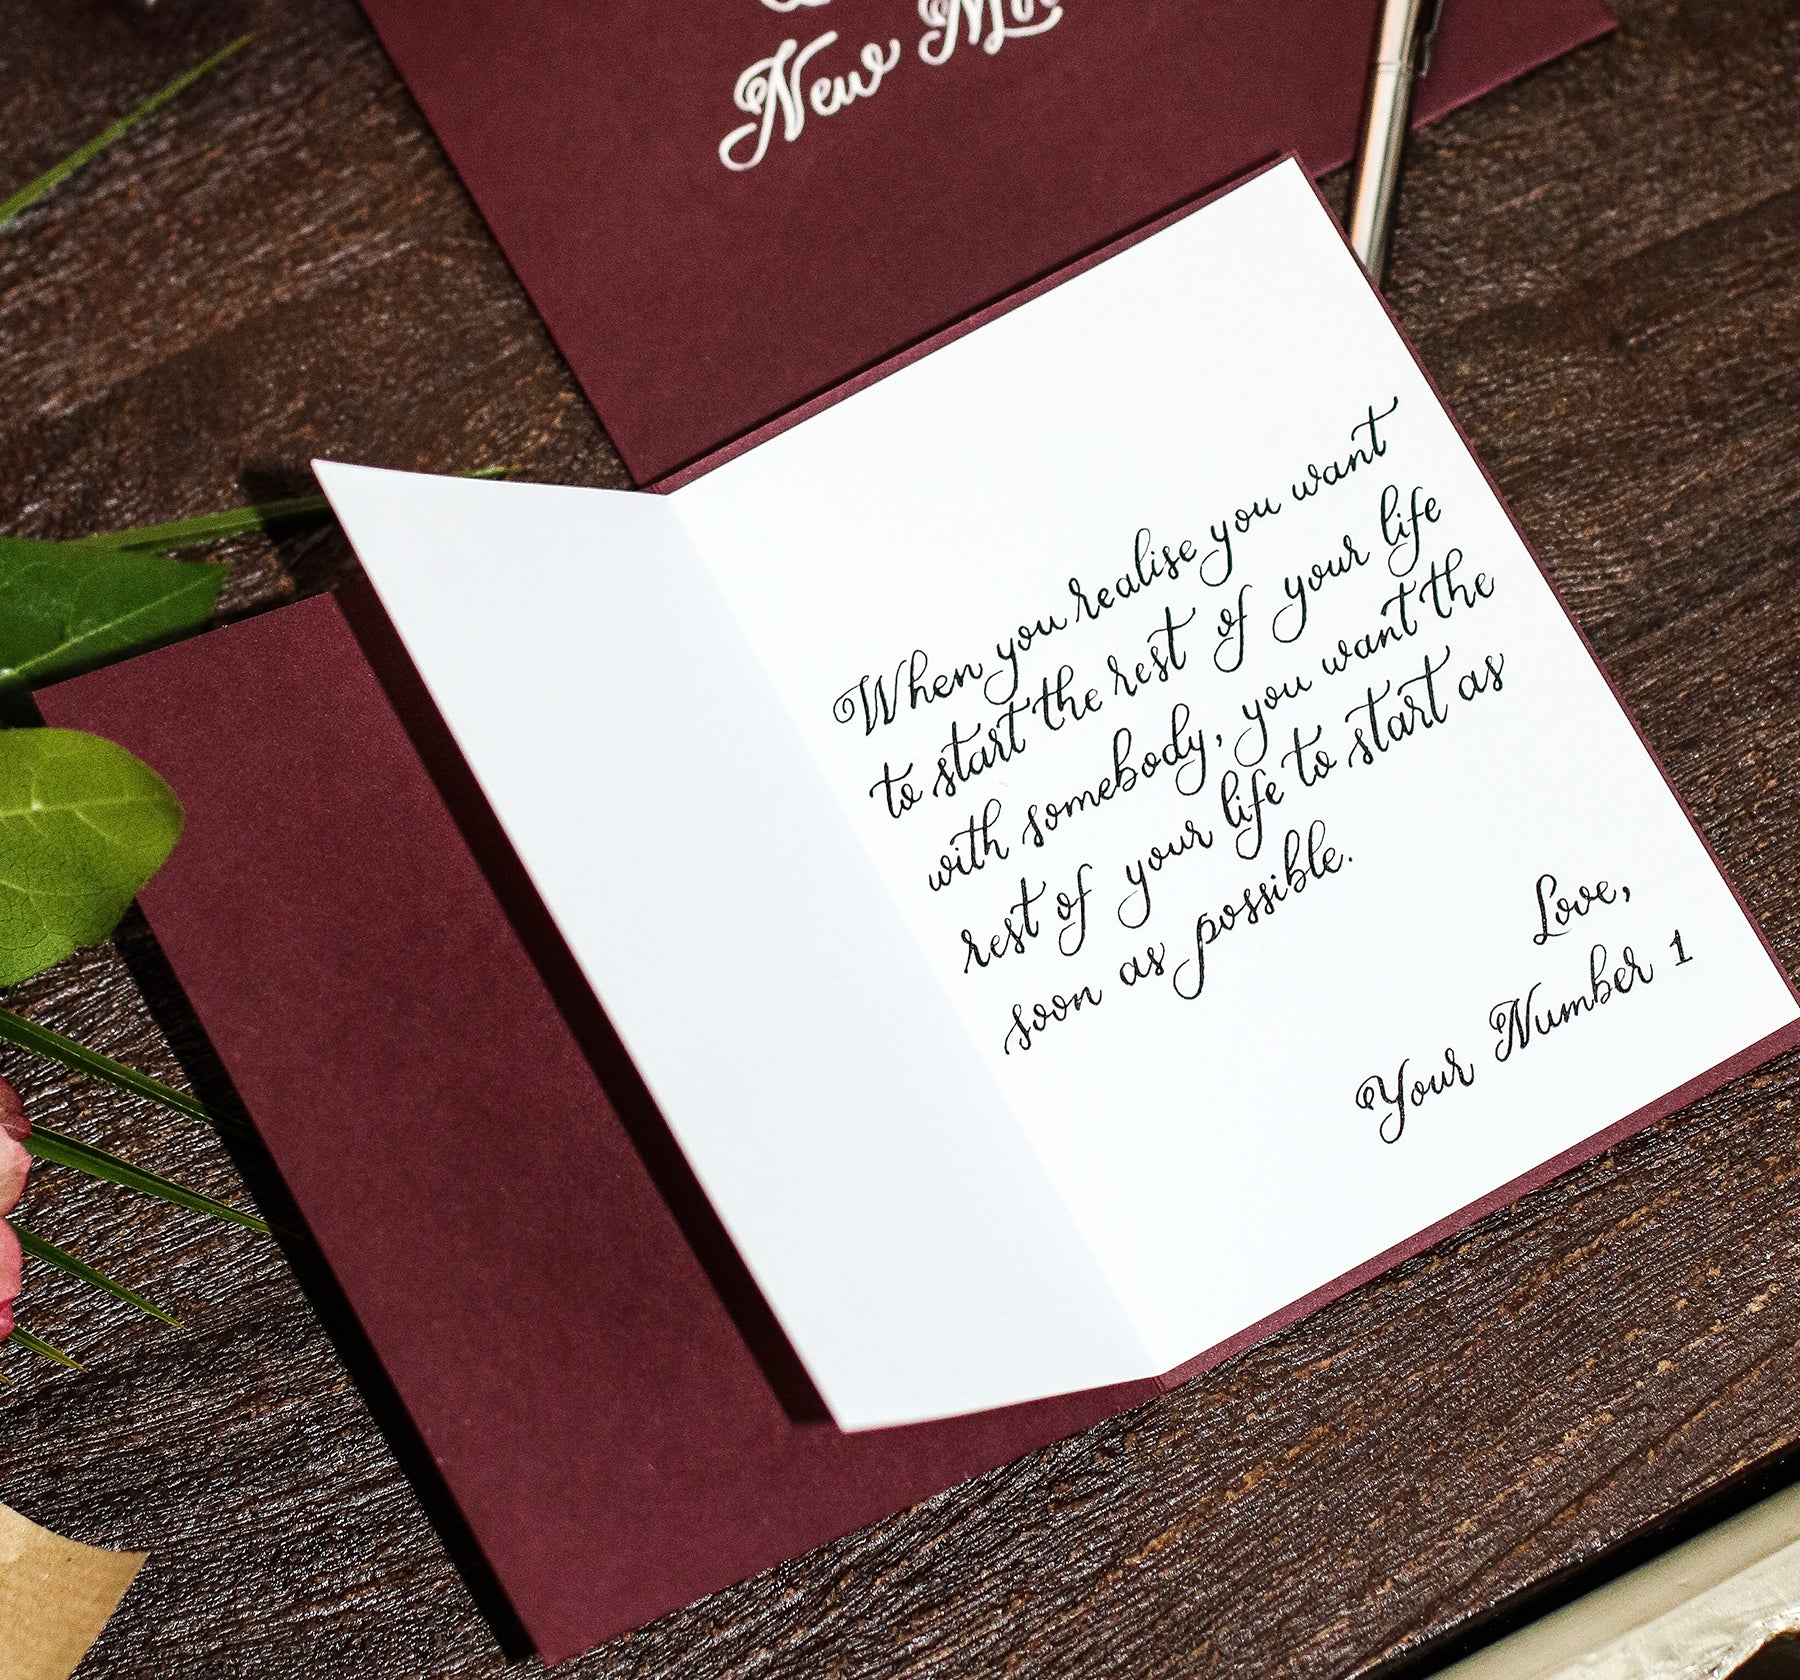 New
When you realise you want
to start the rest of your life
with somebody, you want the
rest of your life to start as
soon as possible.
Love,
Your Number 1